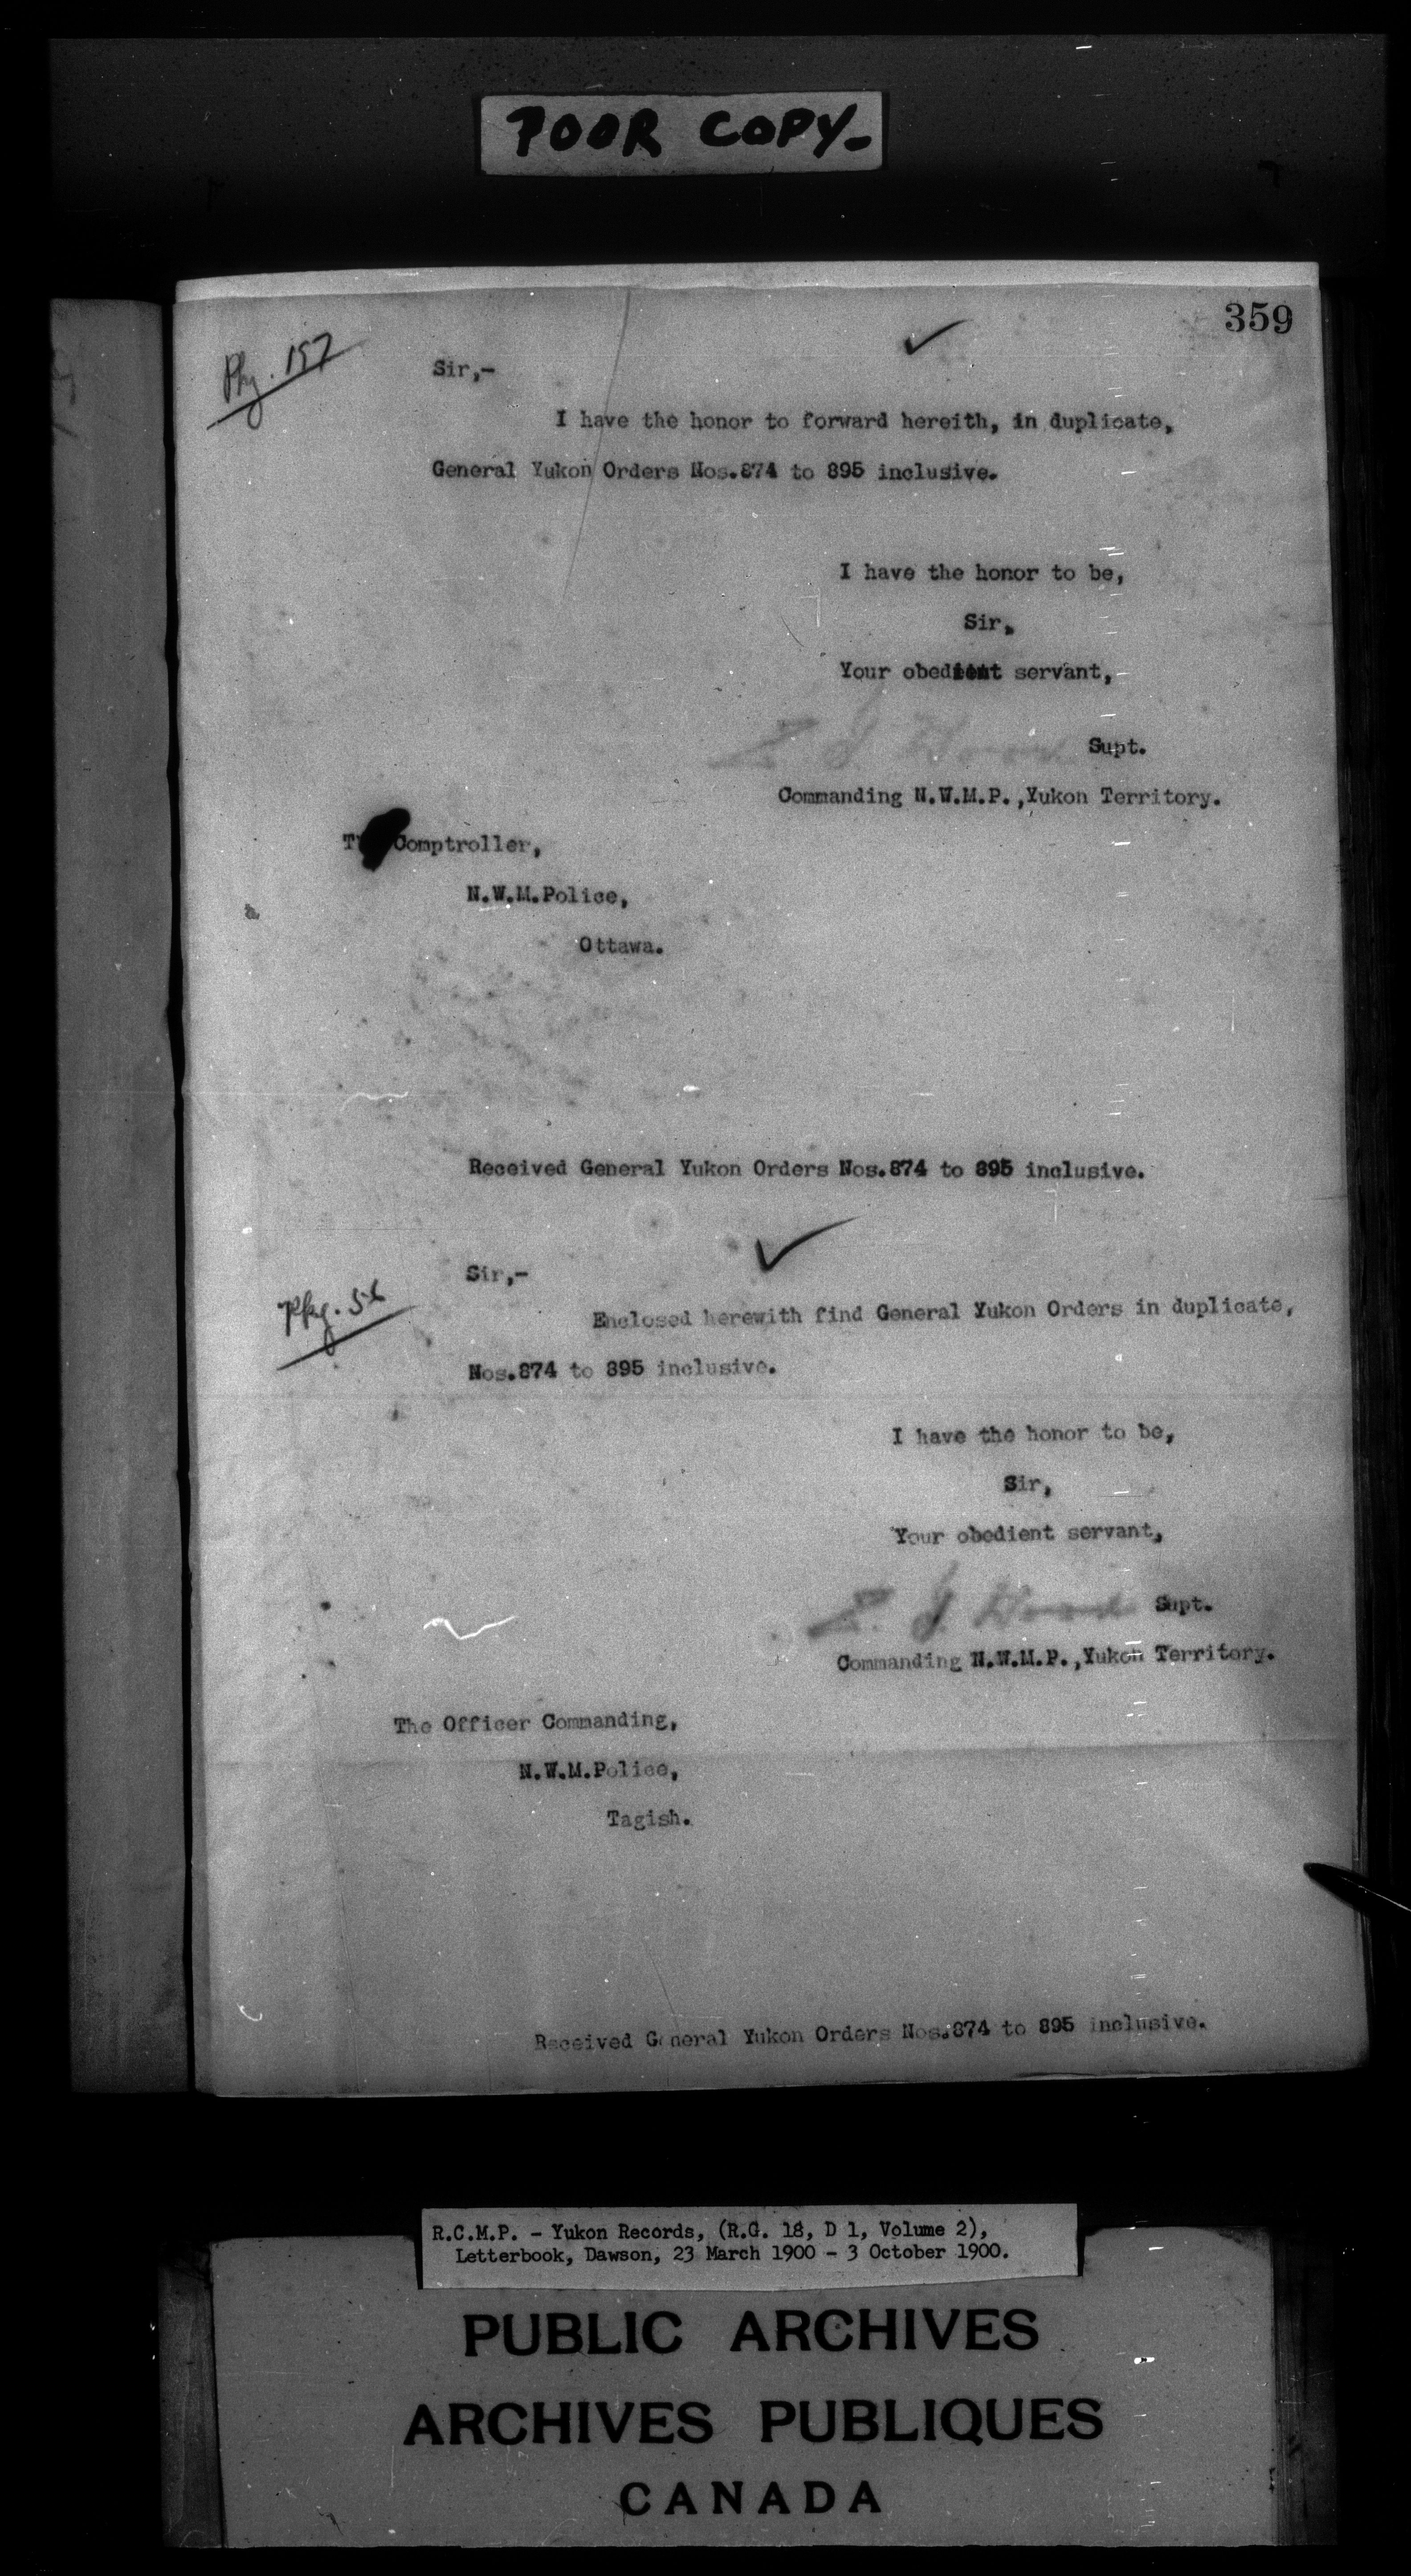 POOR COPY-
359
Sir,-
I have the honor to forward hereith, in duplicate,
General Yukon Orders Nos.874 to 895 inclusive.
I have the honor to be,
Sir,
Your obedient servant,
Z. J. Wood Supt.
Commanding N.W.M.P.,Yukon Territory.
Comptroller,
N.W.M.Police,
Ottawa.
Received General Yukon Orders Nos.874 to 895 inclusive.
Sir,-
Enclosed herewith find General Yukon Orders in duplicate,
Nos.874 to 895 inclusive.
I have the honor to be,
Sir,
Your obedient servant,
Z. J. Wood Supt.
Commanding N.W.M.P.,Yukon Territory.
The Officer Commanding,
N.W.M.Police,
Tagish.
Received General Yukon Orders Nos.874 to 895 inclusive.
R.C.M.P. - Yukon Records, (R.G. 18, D 1, Volume 2),
Letterbook, Dawson, 23 March 1900 - 3 October 1900.
PUBLIC ARCHIVES
ARCHIVES PUBLIQUES
CANADA